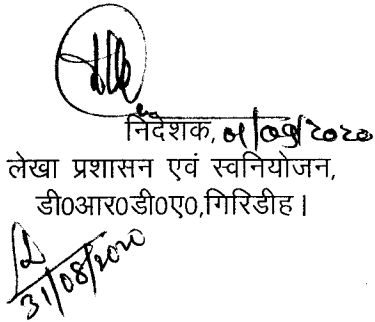 निदेशक, 01/09/2020
लेखा प्रशासन एवं स्वनियोजन,
डी0आर0डी0ए0,गिरिडीह।
31/08/2020